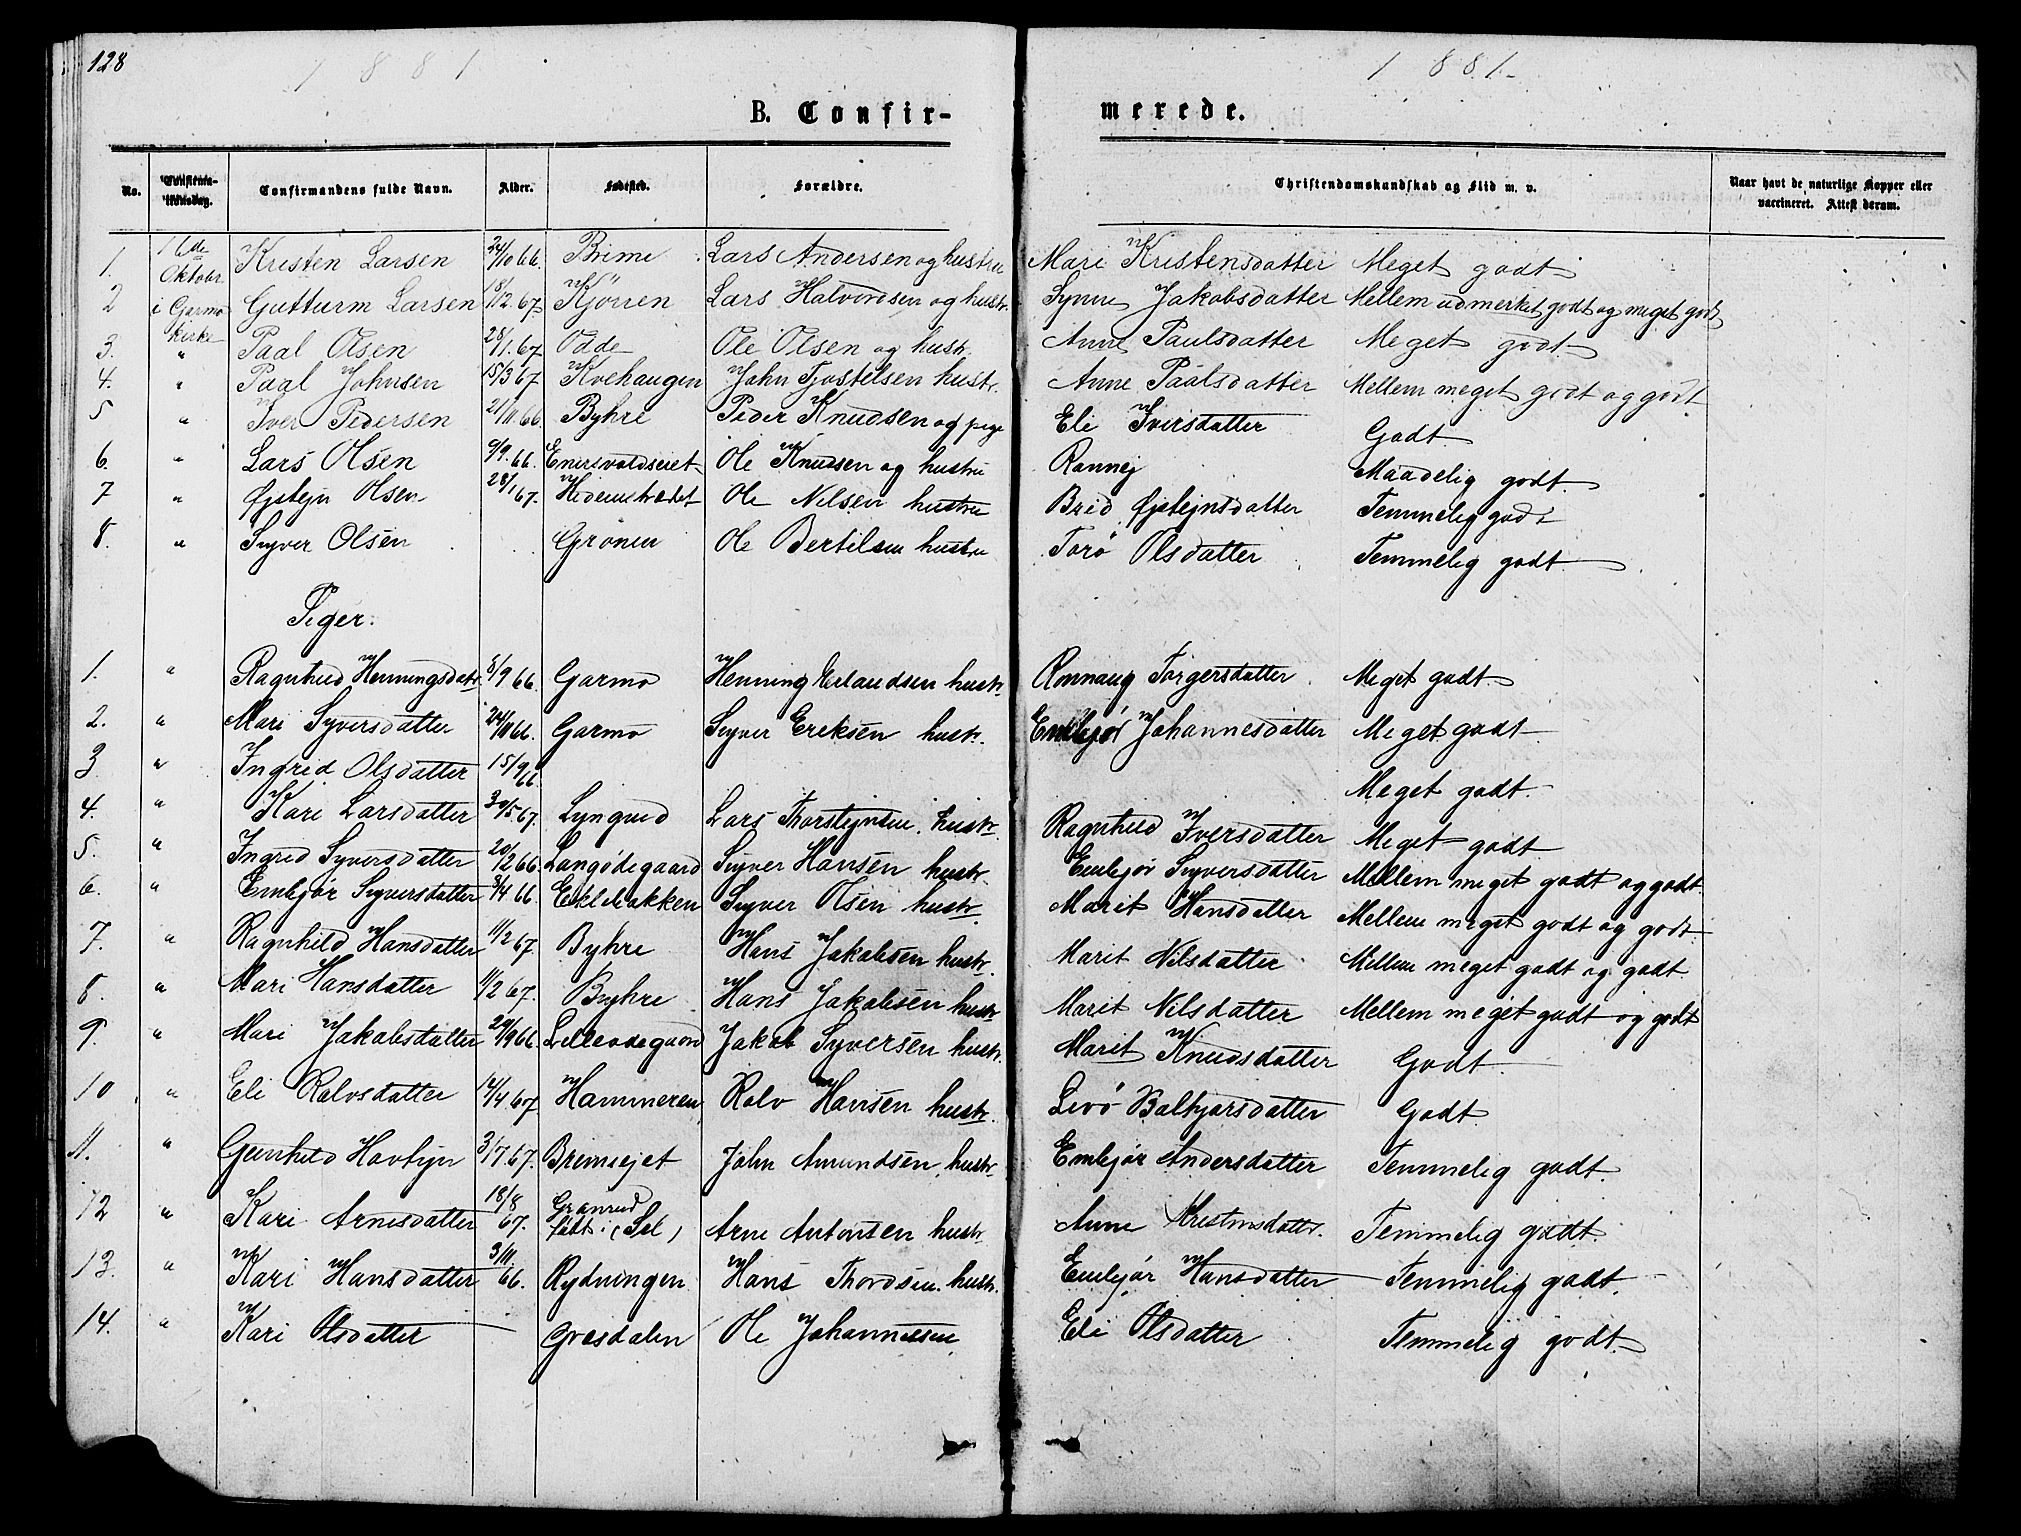 128
1 8 8 1
1 8 8 1.
B. Confir-
merede.
No. Confirmandens fulde Navn. Alder. Fødested. Forældre. Christendomskundskab og Flid m. v. Naar havt de naturlige Kopper eller
vaccineret. Attest derom.
1. 16de Oktober Kristen Larsen 24/10 66. Brimi Lars Andersen og hustru Mari Kristensdatter Meget godt
2 i Garmo kirke Gutturm Larsen 18/12. 67. Kjørren Lars Halvordsen og hustr. Synne Jakobsdatter Mellem udmerket godt og meget godt
3. " Paal Olsen 28/1. 67. Odde Ole Olsen og hustr. Anne Paulsdatter Meget godt
4. " Paal Johnsen 15/3 67. Kvehaugen John Tjostelsen hustr. Anne Paalsdatter Mellem meget godt og godt
5 " Iver Pedersen 21/11. 66. Byhre Peder Knudsen og pige Eli Iversdatter Godt
6. " Lars Olsen 9/9. 66. Ole Knudsen og hustru Rannej Maadelig godt.
7 " Øjstejn Olsen 28/1 67. Ole Nilsen hustru Brid Øjstejnsdatter Temmelig godt
8. " Syver Olsen Grønen Ole Bertilsen hustru Torø Olsdatter Temmelig godt
Piger.
1. " Ragnhild Henningsdatr. 5/9 66. Garmo Henning Erlandsen hustr. Ronnaug Torgersdatter Meget godt.
2. " Mari Syversdatter 24/11 66. Garmo Syver Eriksen hustr. Embjør Johannesdatter Meget godt
3 " Ingrid Olsdatter 15/9 66. Meget godt.
4. " Kari Larsdatter 30/5 67. Lyngved Lars Thorstejnsen. hustr Ragnhild Iversdatter Meget godt
5. " Ingrid Syversdatter 20/2 66. Langødegaard Syver Hansen hustr. Embjør Syversdatter Mellem meget godt og godt.
6. " Embjør Syversdatter 3/4 66. Eklebakken Syver Olsen hustr. Marit Hansdatter Mellem meget godt og godt.
7. " Ragnhild Hansdatter 11/2 67. Byhre Hans Jakobsen hustr. Marit Nilsdatter Mellem meget godt og godt.
8. " Mari Hansdatter 11/2 67. Byhre Hans Jakobsen hustr Marit Nilsdatter Mellem meget godt og godt
9. " Mari Jakobsdatter 29/9 66. Lilleødegaard Jakob Syversen hustr. Marit Knudsdatter Godt.
10 " Eli Rolvsdatter 12/4 67. Hammeren Rolv Hansen hustr. Livø Balhjorsdatter Godt.
11. " Gunhild Havbyn 3/7. 67. Brimsejet John Amundsen hustr. Embjør Andersdatter Temmelig godt.
12 " Kari Arnesdatter 18/8 67. Granrud født i (Sel) Arne Antonsen hustr. Anne Kristensdatr. Temmelig godt.
13. " Kari Hansdatter 3/11 66. Rydningen Hans Thordsen. hustr. Embjør Hansdatter Temmelig godt.
14. " Kari Olsdatter Grøsdalen Ole Johannessen, Eli Olsdatter Temmelig godt.